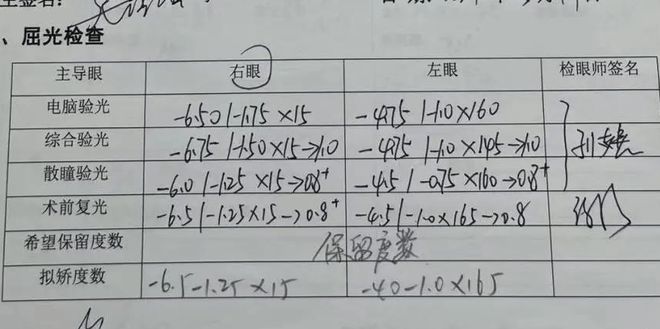 主签名：
、屈光检查
主导眼 右眼 左眼 检眼师签名
电脑验光 -6.50/-1.75×15 -4.75/-1.0×160
综合验光 -6.75/-1.50×15→1.0 -4.75/-1.0×145→1.0
散瞳验光 -6.0/-1.25×15→0.8⁺ -4.5/-0.75×160→0.8⁺
术前复光 -6.5/-1.25×15→0.8⁺ -4.5/-1.0×165→0.8
希望保留度数 保留度数
拟矫度数 -6.5-1.25×15 -4.0-1.0×165